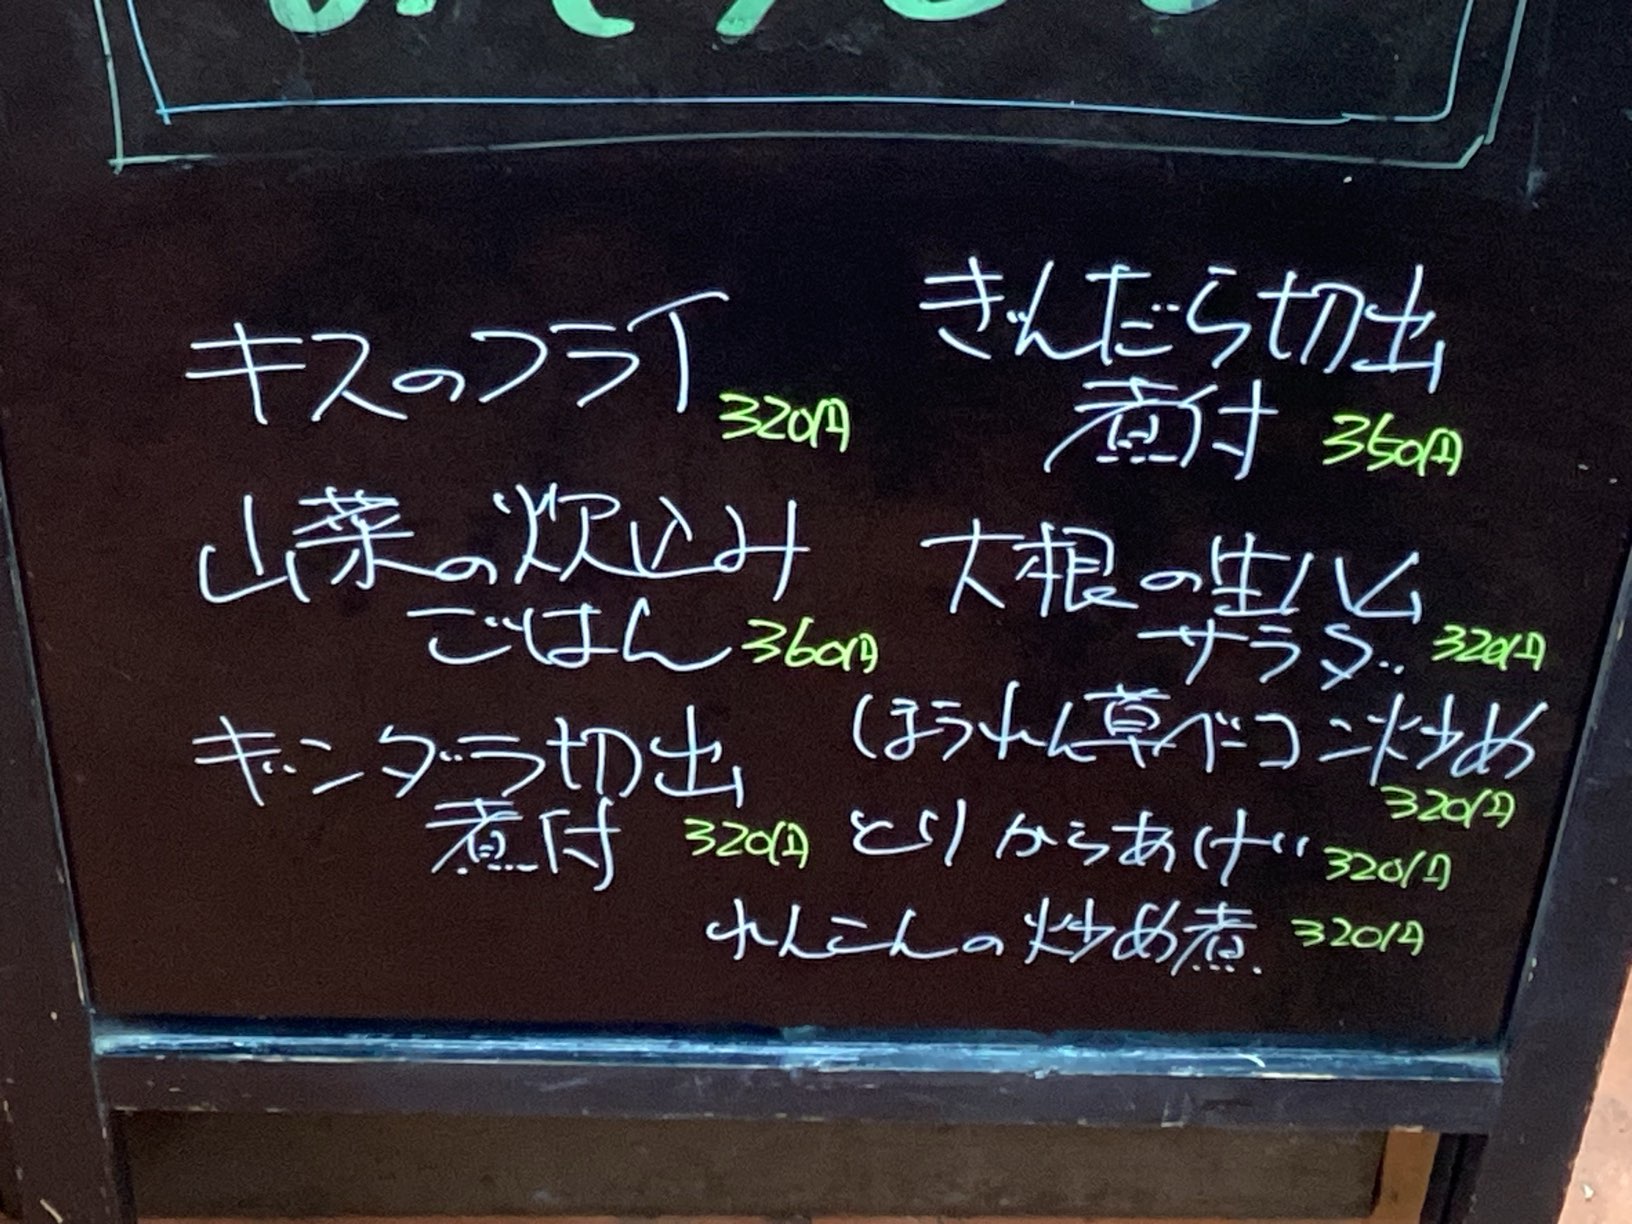 キスのフライ
320円
山菜の炊込み
ごはん 360円
ギンダラ切出
煮付 320円
ぎんだら切出
煮付 350円
大根の生ハム
サラダ 320円
ほうれん草ベーコン炒め
320円
とりからあげ 320円
れんこんの炒め煮 320円